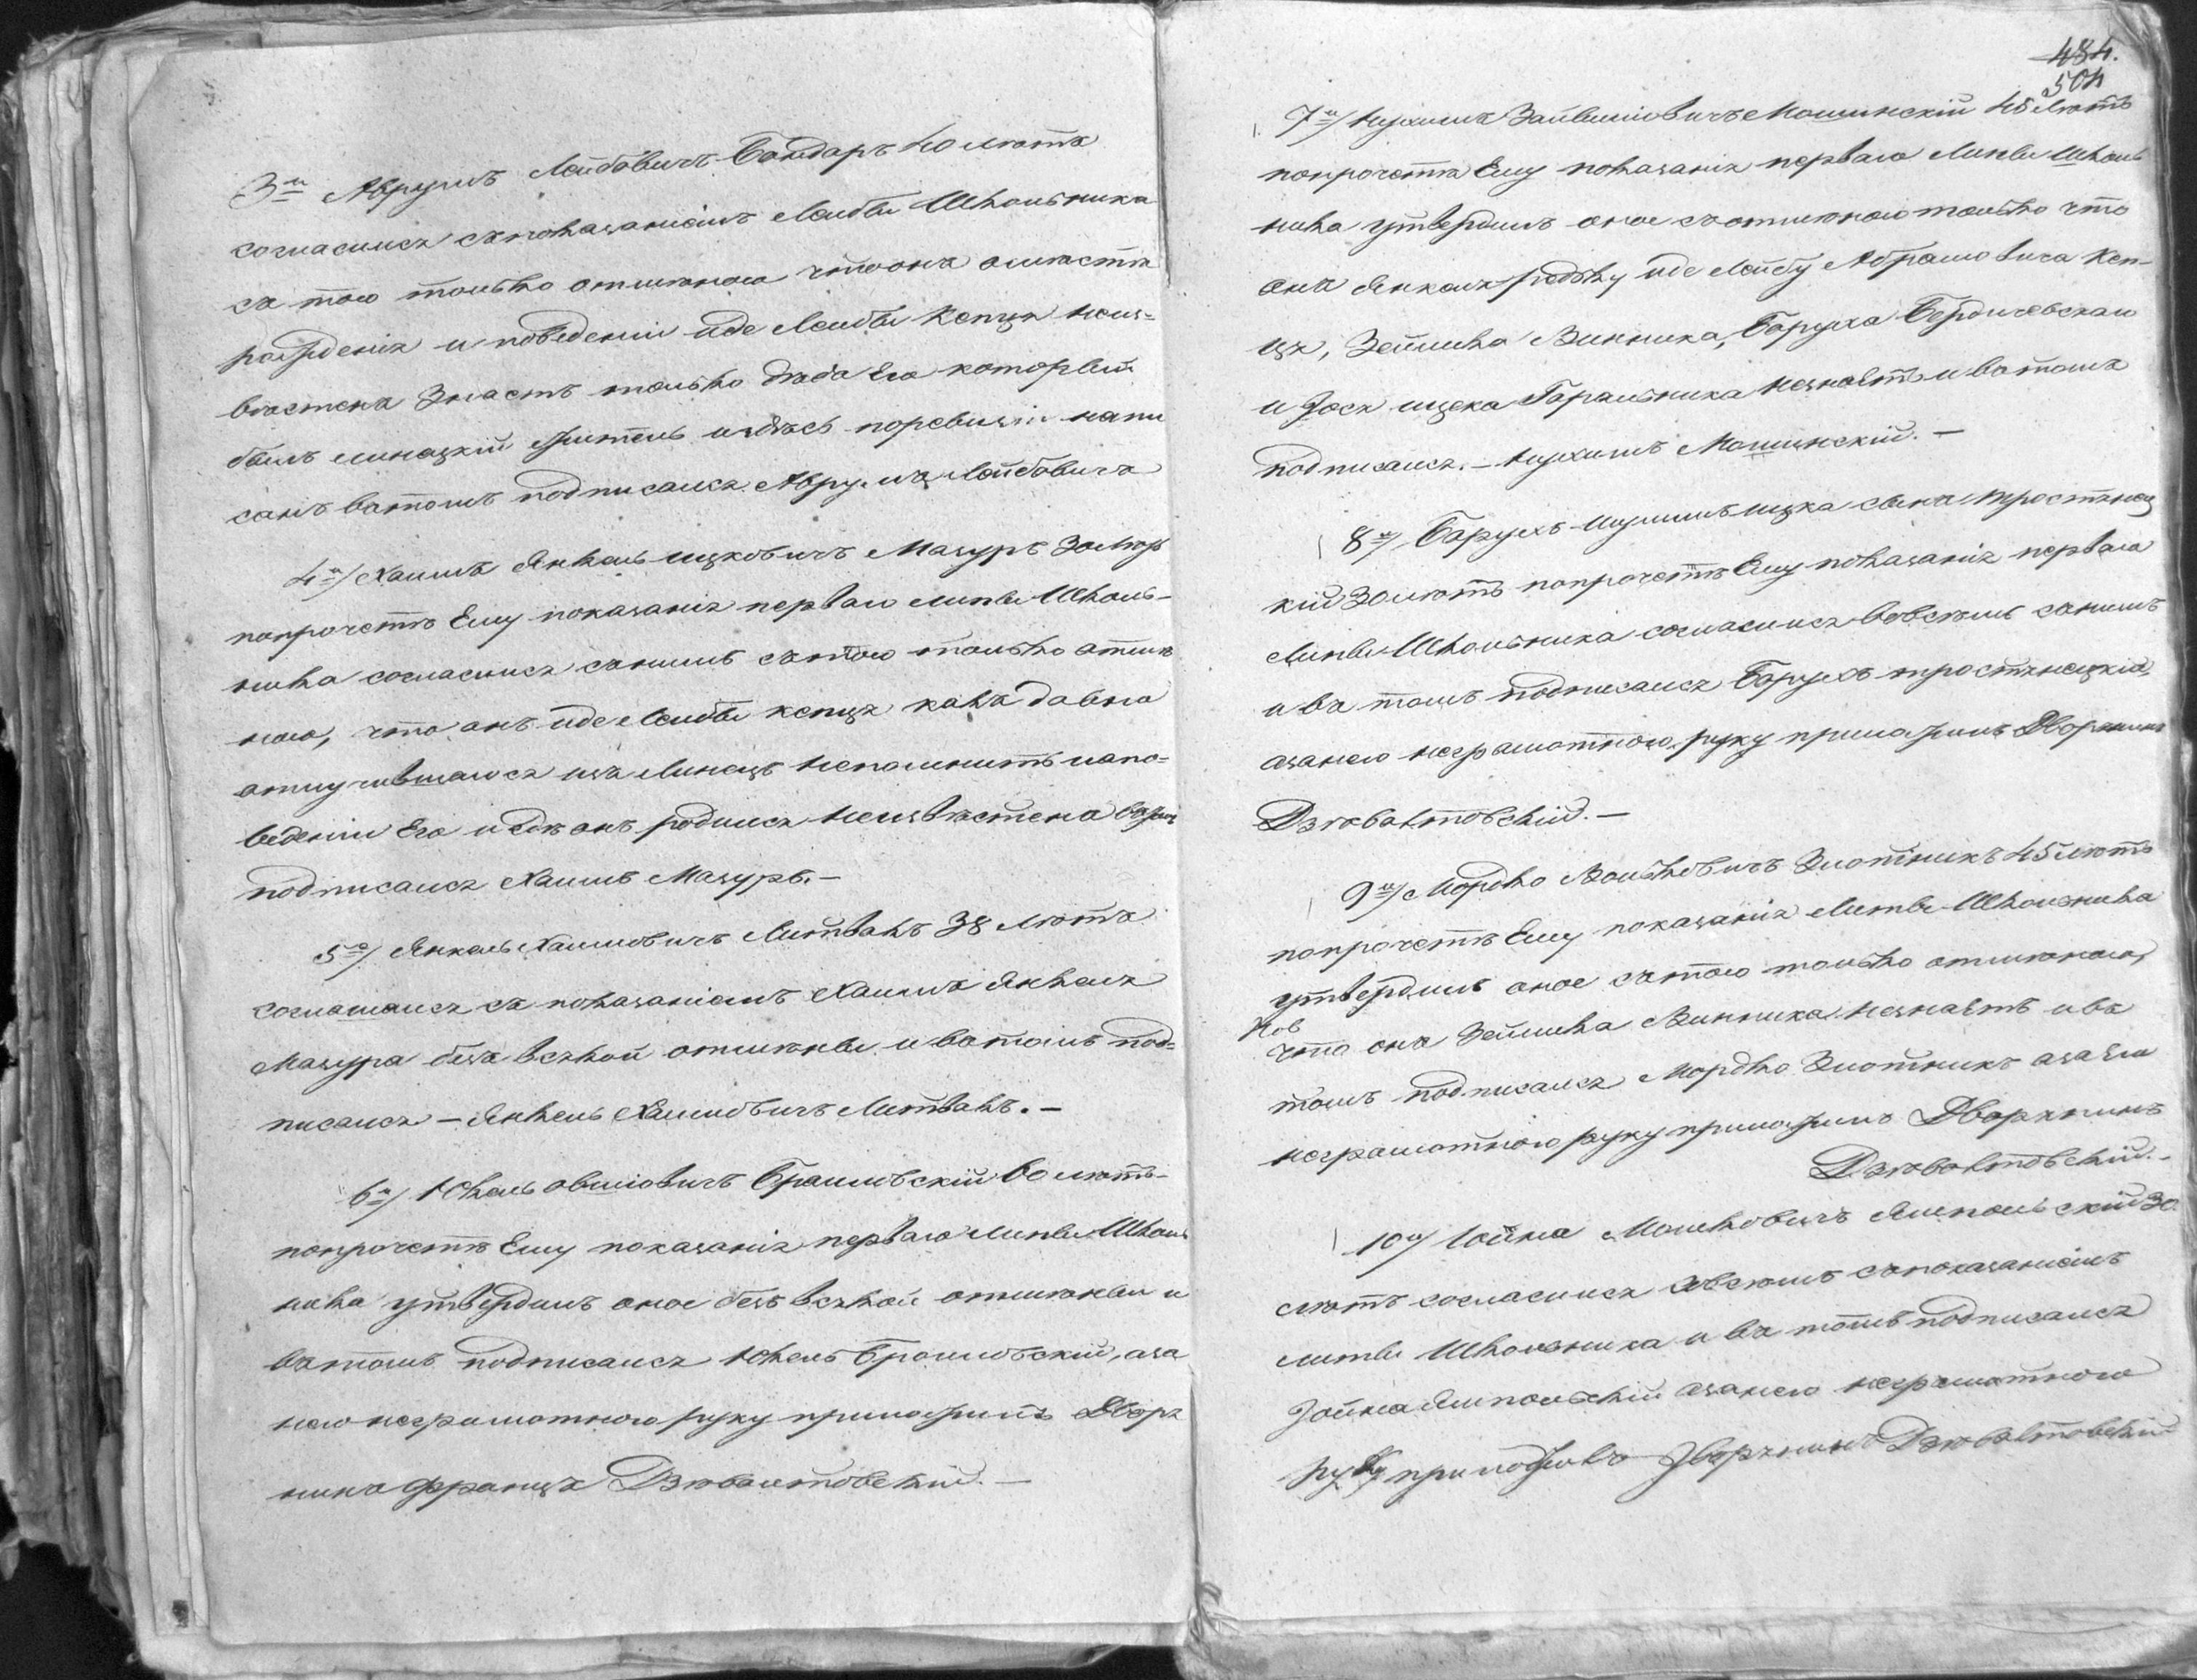 3й Аврумъ Лейбовичъ Бондаръ 40 летъ
согласился съ показаніемъ Лейбы Школьника
съ тою только отменою что онъ о месте
рожденія и поведеніи иде Лейбы Кепца неиз=
вестенъ знаетъ только деда Его который
былъ линецкій житель и здесь поревизіи напи
санъ ватомъ подписался Аврумъ Лейбовичъ
4й/ Хаимъ Янкель ицковичъ Мазуръ 30 летъ
попрочетте Ему показанія перваго Липы Школь-
ника согласился снимъ стою только отмен
ною, что онъ иде Лейбы кепца какъ давно
отлучившагося изъ Линецъ непомнитъ напо=
веденіи Его и где онъ родился неизвестенъ
подписался Хаимъ Мазуръ.—
5й/ Янкель Хаимовичъ Литвакъ 38 летъ
согласился съ показаніемъ Хаима Янкеля
Мазура безъ всякой отмены и ватомъ под=
писался — Янкель Хаимовичъ Литвакъ.—
6й/ Юкель овшіовичъ Браиловскій 60 летъ-
попрочетте Ему показанія перваго Липы Школь
ника утвердилъ оное безъ всякой отмены и
ватомъ подписался Юкель Браиловскій, аза
него неграмотного руку приложилъ Дворя
нинъ Францъ Дзевалтовскій.—
484.
504
7й/ Нухимъ Зайвиліовичъ Мошинскій 45 летъ
попрочетте Ему показанія перваго Липы Школь
ника утвердилъ оное съ отменою только что
онъ Янкеля редьку иде Лейбу Абрамовича Кеп-
ца, Зейлика Винника, Баруха Бердичевскаго
и Йося ицека Гаральника незнаетъ и ватомъ
подписался.— Нухимъ Мошинскій.—
8й/ Барухъ Шулимъ ицка сынъ тростянец
кій 30 летъ попрочетте Ему показанія перваго
Липы Школьника согласился вовсемъ санимъ
и ва томъ подписался Барухъ тростянецкій,
азанего неграмотного руку приложилъ Дворянинъ
Дзевалтовскій.—
9й/ Мордко Вольковичъ Злотникъ 45 летъ
попрочетте Ему показанія Липы Школьника
утвердилъ оное стою только отменою,
что онъ Зейлика Винника незнаетъ ива
томъ подписался Мордко Злотникъ азаего
неграмотного руку приложилъ Дворянинъ
Дзевалтовскій.—
10й/ Іойна Мошковичъ Ямпольскій 30
летъ согласился вовсемъ спаказаніемъ
липы Школьника и ва томъ подписался
Іойна Ямпольскій азанего неграмотного
руку приложилъ Дворянинъ Дзевалтовскій